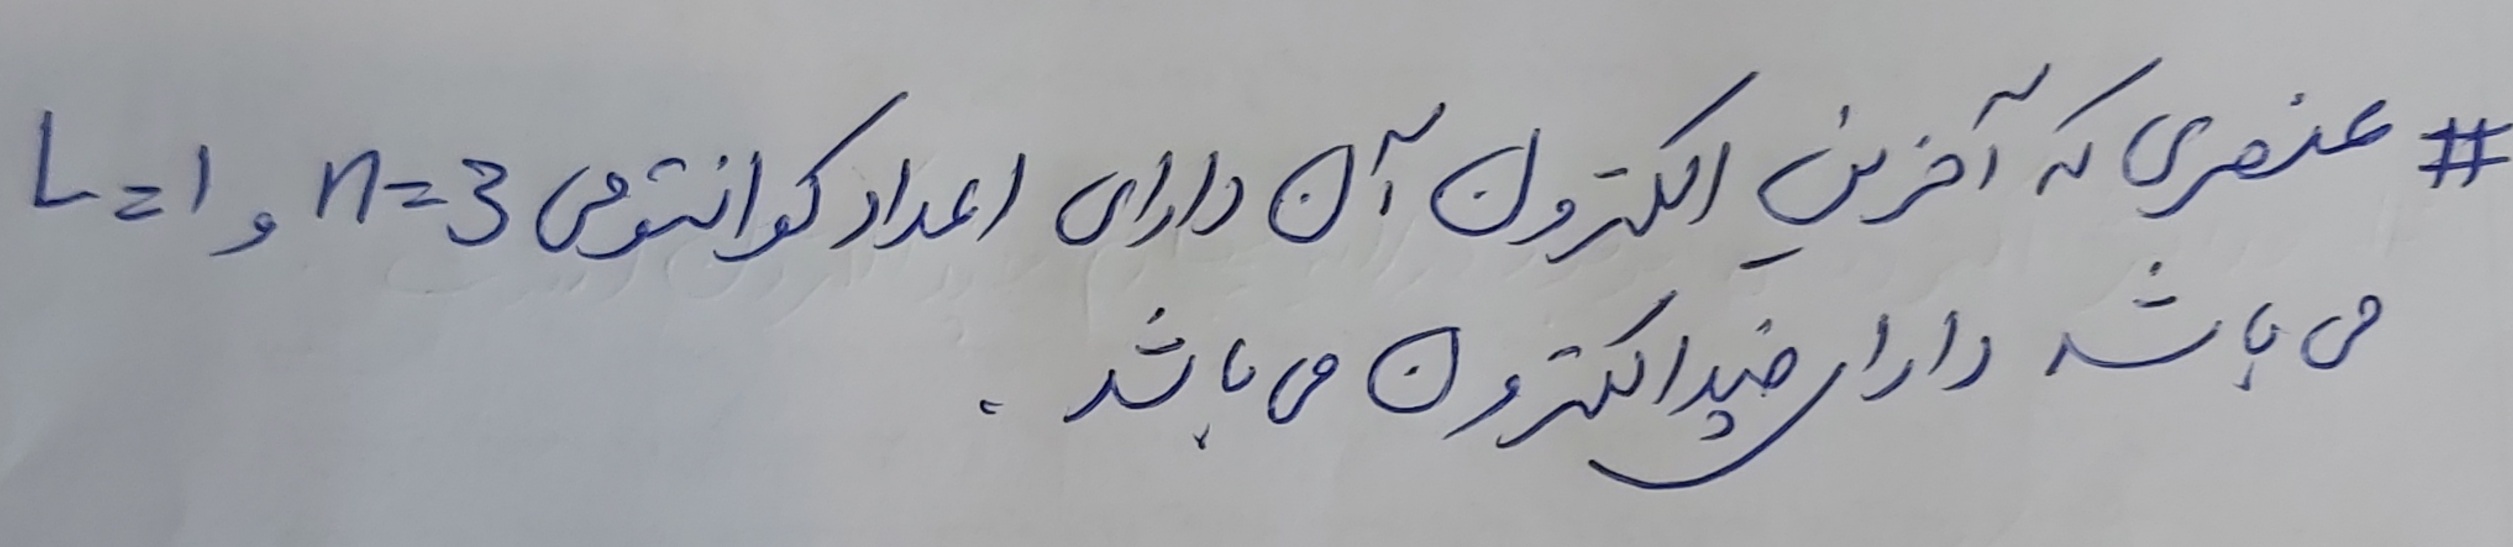 # عنصری که آخرین الکترون آن دارای اعداد کوانتومی n=3 و L=1
می باشد دارای چند الکترون می باشد.